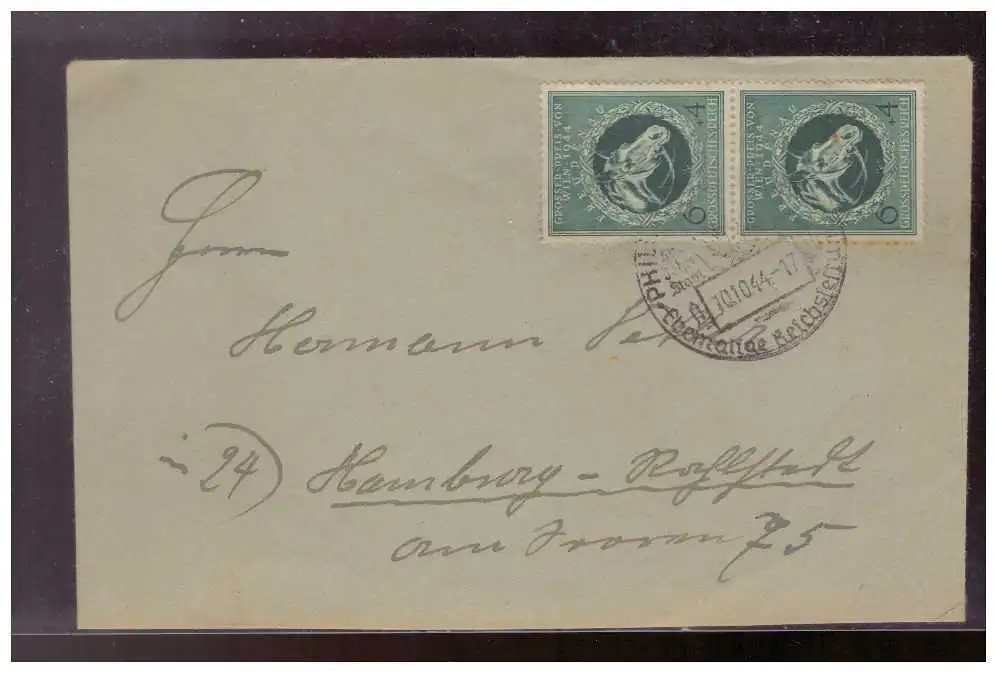 GROSSER PREIS VON
WIEN 1944
FREUDENAU
6 + 4
GROSSDEUTSCHES REICH
GROSSER PREIS VON
WIEN 1944
FREUDENAU
6 + 4
GROSSDEUTSCHES REICH
PHIL
10.10.44.-17
Ehemalige Reichsfestu
Herrn
Hermann
in 24) Hamburg-Rahlstedt
am 75